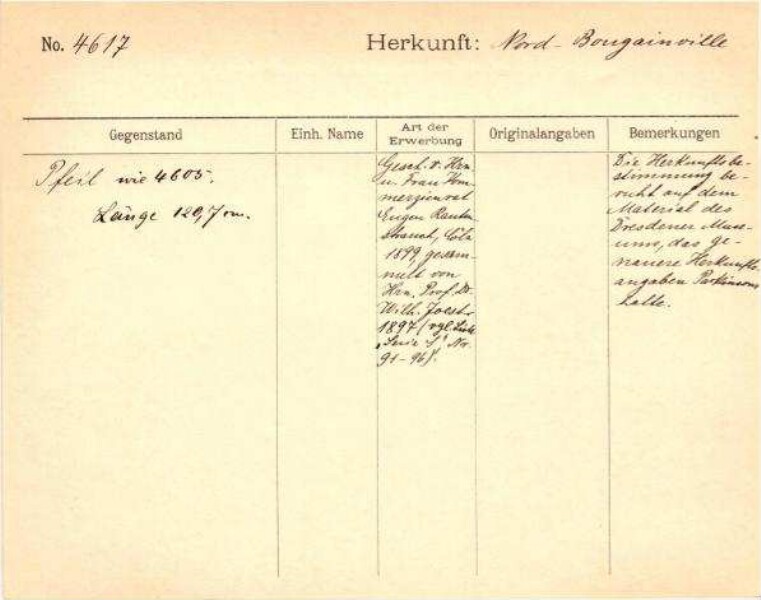 No. 4617
Herkunft: Nord-Bougainville
Gegenstand
Einh. Name
Art der
Erwerbung
Originalangaben
Bemerkungen
Pfeil wie 4605.
Länge 120,7 cm.
Gesch. v. Hrn
u. Frau Kom-
merzienrat
Eugen Rauten-
strauch, Cöln
1899, gesam-
melt von
Hrn. Prof. Dr.
Wilh. Joest
1897 (vgl. Liste
"Serie S" No.
91-96).
Die Herkunftsbe-
stimmung be-
ruht auf dem
Material des
Dresdener Muse-
ums, das ge-
nauere Herkunfts-
angaben Parkinsons
hatte.